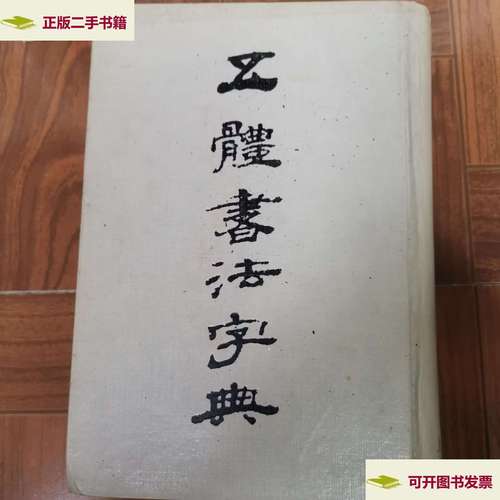 正版二手书籍
五體書法字典
可开图书发票